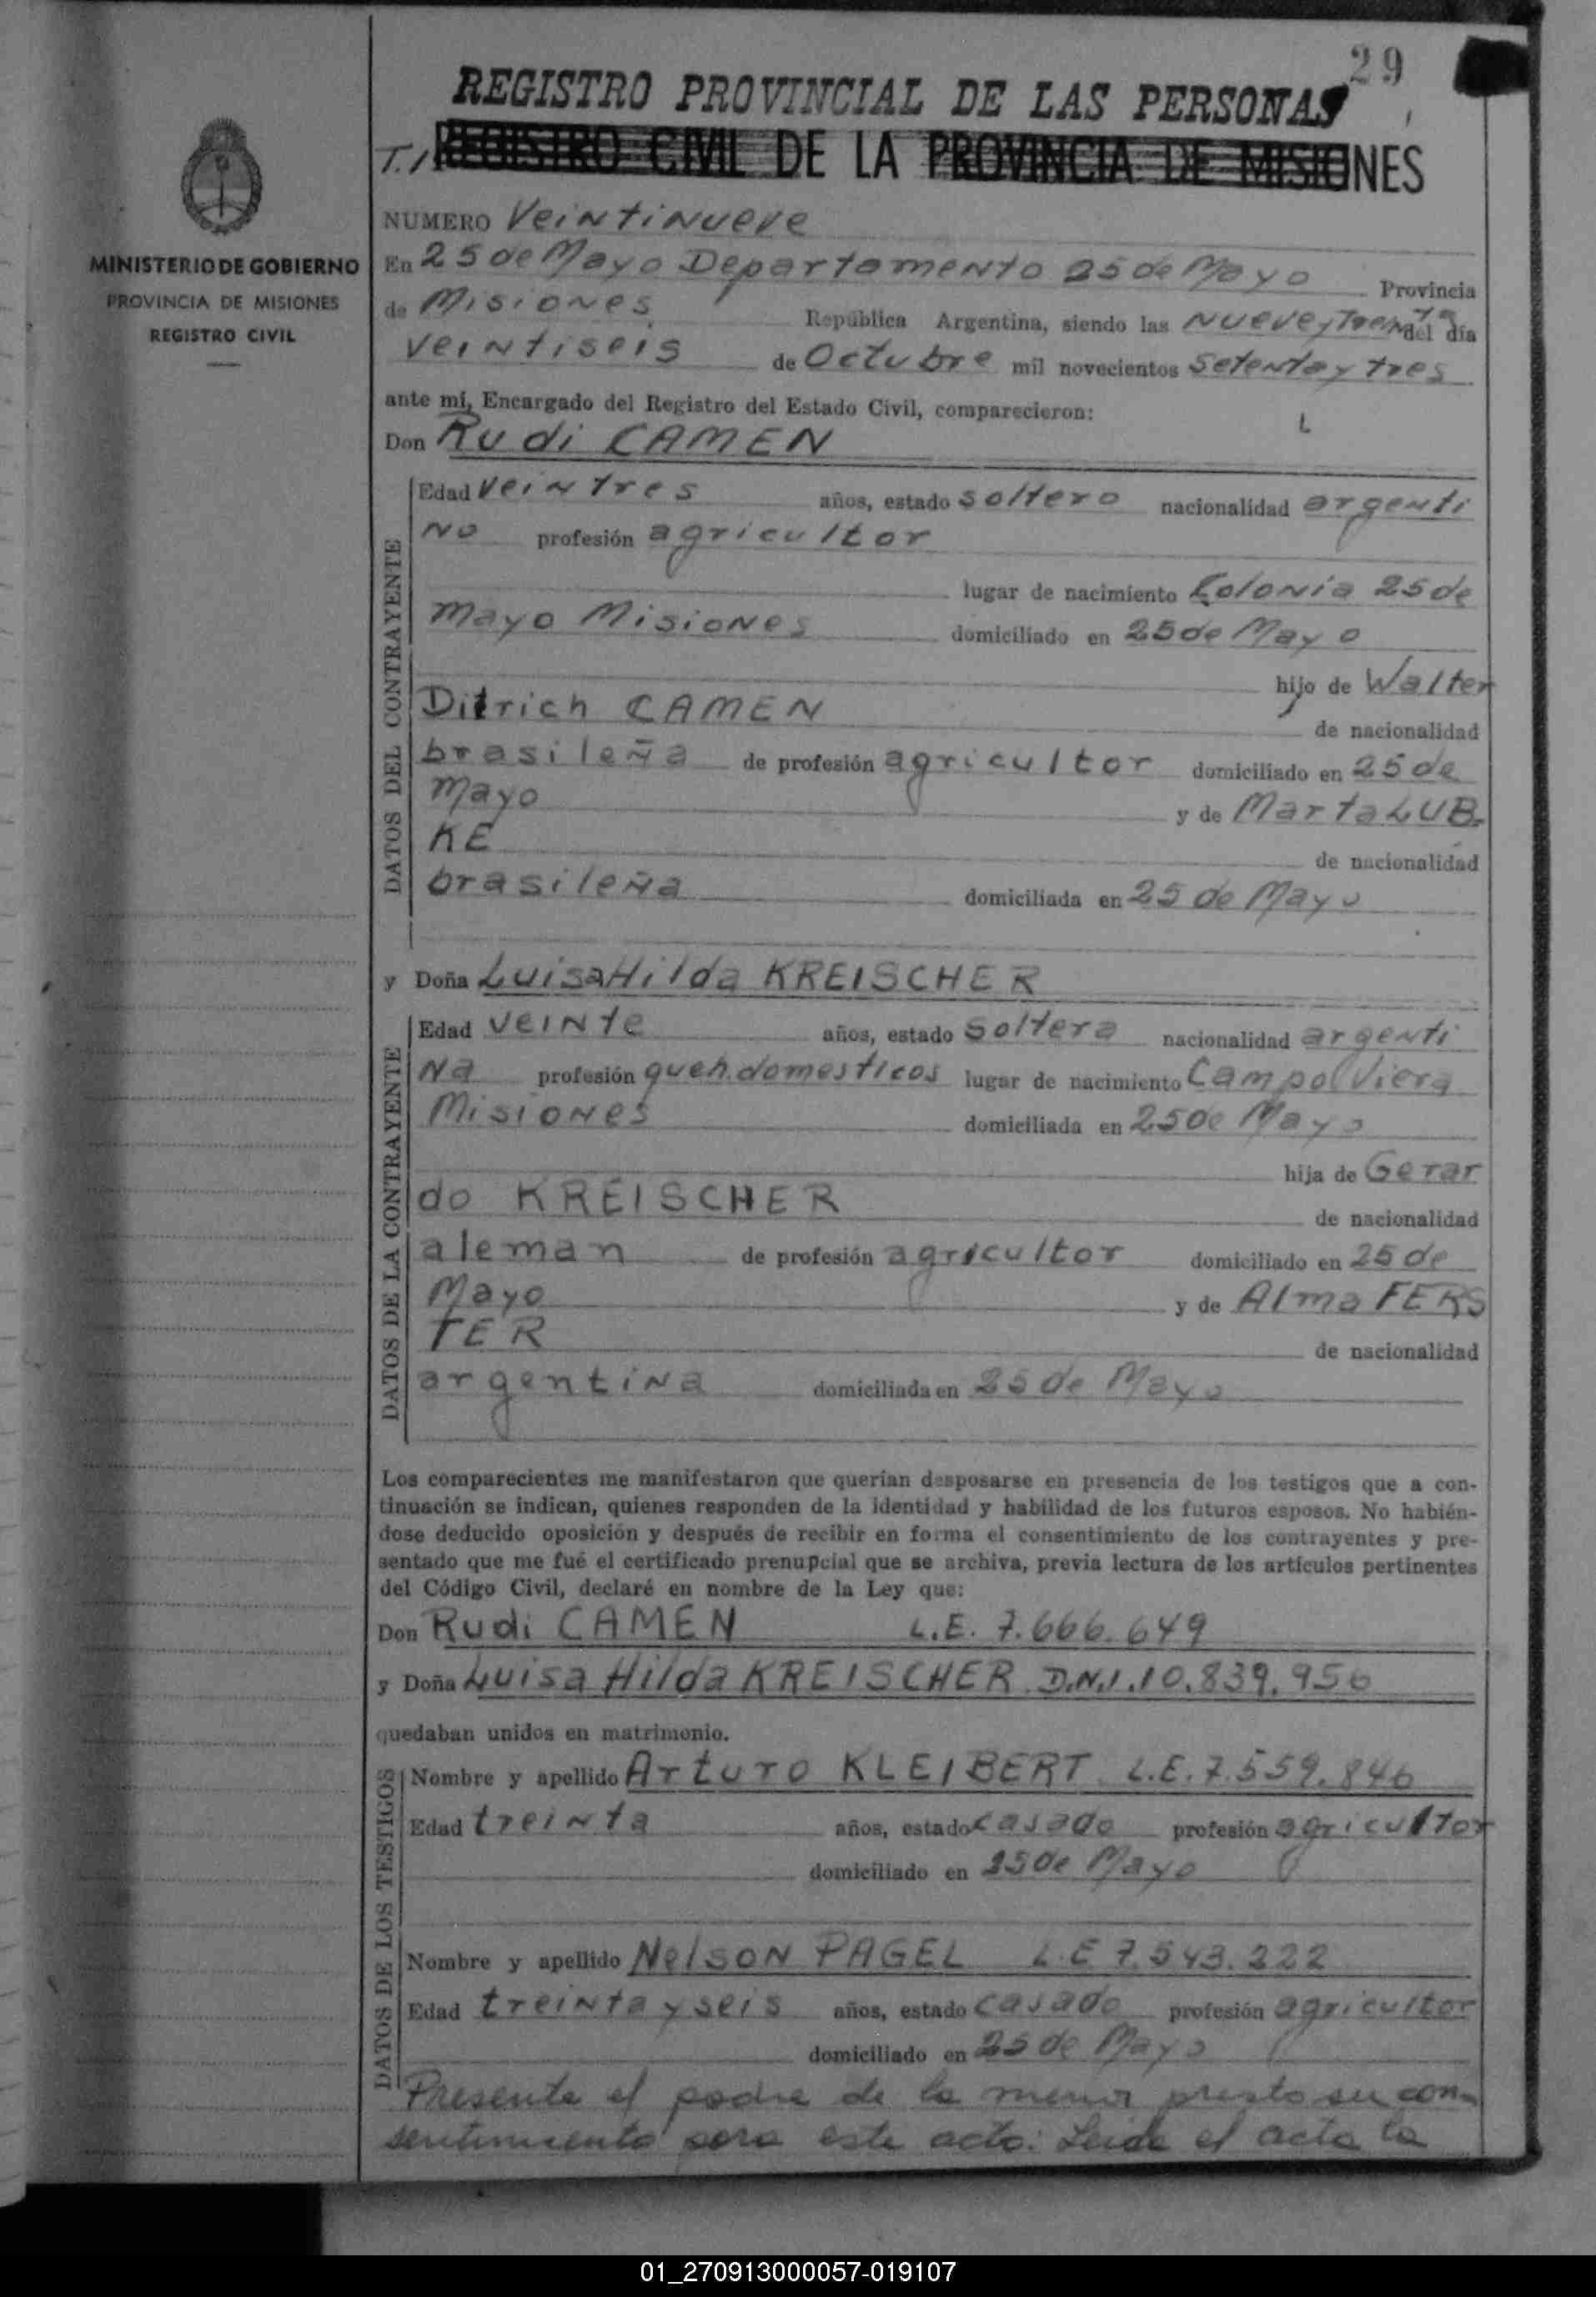 29
REGISTRO PROVINCIAL DE LAS PERSONAS
T.I REGISTRO CIVIL DE LA PROVINCIA DE MISIONES
MINISTERIO DE GOBIERNO
PROVINCIA DE MISIONES
REGISTRO CIVIL
NUMERO Veintinueve
En 25 de Mayo Departamento 25 de Mayo Provincia
de Misiones República Argentina, siendo las nueve y Treinta del día
veintiseis de Octubre mil novecientos setenta y tres
ante mí, Encargado del Registro del Estado Civil, comparecieron:
Don Rudi CAMEN
DATOS DEL CONTRAYENTE
Edad veintres años, estado soltero nacionalidad argenti
no profesión agricultor
lugar de nacimiento Colonia 25 de
Mayo Misiones domiciliado en 25 de Mayo
hijo de Walter
Ditrich CAMEN de nacionalidad
brasileña de profesión agricultor domiciliado en 25 de
Mayo y de Marta LUB-
KE de nacionalidad
brasileña domiciliada en 25 de Mayo
y Doña Luisa Hilda KREISCHER
DATOS DE LA CONTRAYENTE
Edad veinte años, estado soltera nacionalidad argenti
na profesión queh. domesticos lugar de nacimiento Campo Viera
Misiones domiciliada en 25 de Mayo
hija de Gerar
do KREISCHER de nacionalidad
aleman de profesión agricultor domiciliado en 25 de
Mayo y de Alma FERS
TER de nacionalidad
argentina domiciliada en 25 de Mayo
Los comparecientes me manifestaron que querían desposarse en presencia de los testigos que a con-
tinuación se indican, quienes responden de la identidad y habilidad de los futuros esposos. No habién-
dose deducido oposición y después de recibir en forma el consentimiento de los contrayentes y pre-
sentado que me fué el certificado prenupcial que se archiva, previa lectura de los artículos pertinentes
del Código Civil, declaré en nombre de la Ley que:
Don Rudi CAMEN L.E. 7.666.649
y Doña Luisa Hilda KREISCHER D.N.I. 10.839.956
quedaban unidos en matrimonio.
DATOS DE LOS TESTIGOS
Nombre y apellido Arturo KLEIBERT L.E. 7.559.846
Edad treinta años, estado casado profesión agricultor
domiciliado en 25 de Mayo
Nombre y apellido Nelson PAGEL L.E 7.543.222
Edad treinta y seis años, estado casado profesión agricultor
domiciliado en 25 de Mayo
Presente el padre de la menor presto su con-
sentimiento para este acto: Leida el acta la
01_270913000057-019107